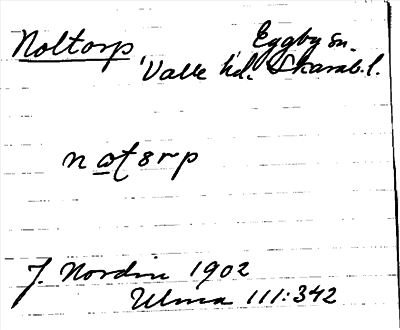 Noltorp Eggby sn.
Valle hd. Skarab. l.
notorp
J. Nordin 1902
Ulma 111:342